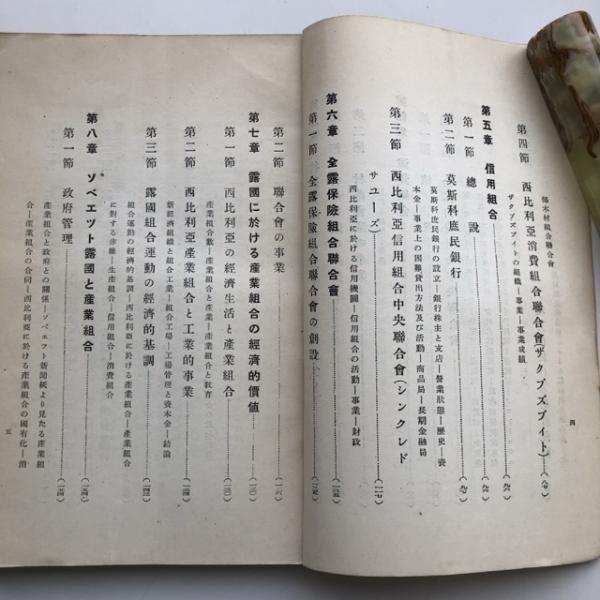 郷木材組合聯合會
第四節 西比利亞消費組合聯合會(ザクプズブイト)
ザクブズブイトの組織―事業―事業成績
第五章 信用組合
第一節 總說
第二節 莫斯科庶民銀行
莫斯科庶民銀行の設立―銀行株主と支店―營業狀態―歷史―資
本金―事業上の困難貸出方法及び活動―商品局―長期金融局
第三節 西比利亞信用組合中央聯合會(シンクレド
サユーズ)
西比利亞に於ける信用機關―信用組合の活動―事業―財政
第六章 全露保險組合聯合會
第一節 全露保險組合聯合會の創設
四
第二節 聯合會の事業
第七章 露國に於ける產業組合の經濟的價値
第一節 西比利亞の經濟生活と產業組合
產業組合數―產業組合と產業―產業組合と敎育
第二節 西比利亞產業組合と工業的事業
新經濟組織と組合工業―組合工場―工場管理と資本金―結論
第三節 露國組合運動の經濟的基調
組合運動の經濟的基調―西比利亞に於ける產業組合―產業組合
に對する赤雅―生產組合―信用組合―消費組合
第八章 ソベエツト露國と產業組合
第一節 政府管理
產業組合と政府との關係―ソベエフト新聞紙より見たる產業組
合―產業組合の合同―西比利亞に於ける產業組合の國有化―消
五